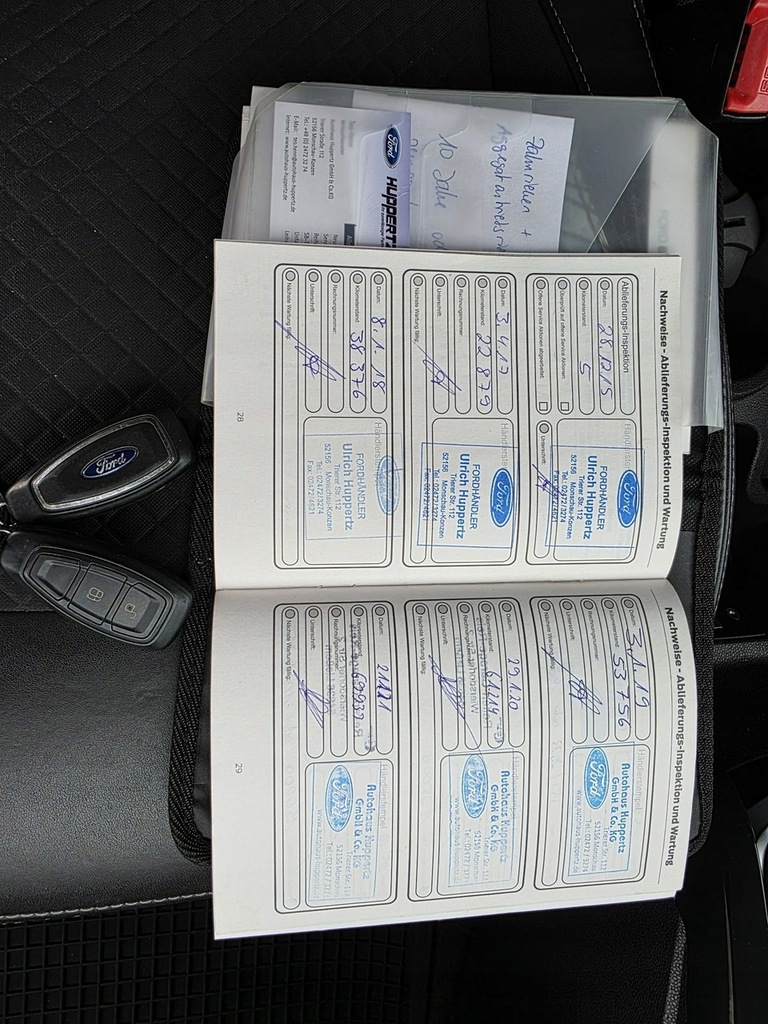 Ford
HUPPERTZ
Autohaus Huppertz GmbH & Co.KG
Trierer Straße 112
52156 Monschau-Konzen
Tel.: +49 (0) 2472 32 74
Internet: www.autohaus-huppertz.de
Zahnriemen +
10 Jahre
Nachweise - Ablieferungs-Inspektion und Wartung
Ablieferungs-Inspektion
Datum:
28.12.15
Kilometerstand:
5
Überprüft auf offene Service Aktionen:
Offene Service Aktionen abgearbeitet:
Unterschrift:
Ford
FORDHÄNDLER
Ulrich Huppertz
Trierer Str. 112
52156 Monschau-Konzen
Tel.: 02472/3274
Fax: 02472/4621
Datum:
3.4.17
Kilometerstand:
22 879
Rechnungsnummer:
Unterschrift:
Nächste Wartung fällig:
Ford
FORDHÄNDLER
Ulrich Huppertz
Trierer Str. 112
52156 Monschau-Konzen
Tel.: 02472/3274
Fax: 02472/4621
Datum:
8.1.18
Kilometerstand:
38 376
Rechnungsnummer:
Unterschrift:
Nächste Wartung fällig:
Händlerstempel
FORDHÄNDLER
Ulrich Huppertz
Trierer Str. 112
52156 Monschau-Konzen
Tel.: 02472/3274
Fax: 02472/4621
28
Nachweise - Ablieferungs-Inspektion und Wartung
Datum:
3.1.19
Kilometerstand:
53756
Rechnungsnummer:
Unterschrift:
Nächste Wartung fällig:
Händlerstempel
Autohaus Huppertz
GmbH & Co. KG
Ford
Trierer Str. 112
52156 Monschau
Tel.: 02472 / 3274
www.autohaus-huppertz.de
Datum:
29.1.20
Kilometerstand:
Rechnungsnummer:
Unterschrift:
Nächste Wartung fällig:
Händlerstempel
Autohaus Huppertz
GmbH & Co. KG
Ford
Trierer Str. 112
52156 Monschau
Datum:
Kilometerstand:
Rechnungsnummer:
Unterschrift:
Nächste Wartung fällig:
Händlerstempel
Autohaus Huppertz
GmbH & Co. KG
Ford
Trierer Str. 112
52156 Monschau
29
Ford